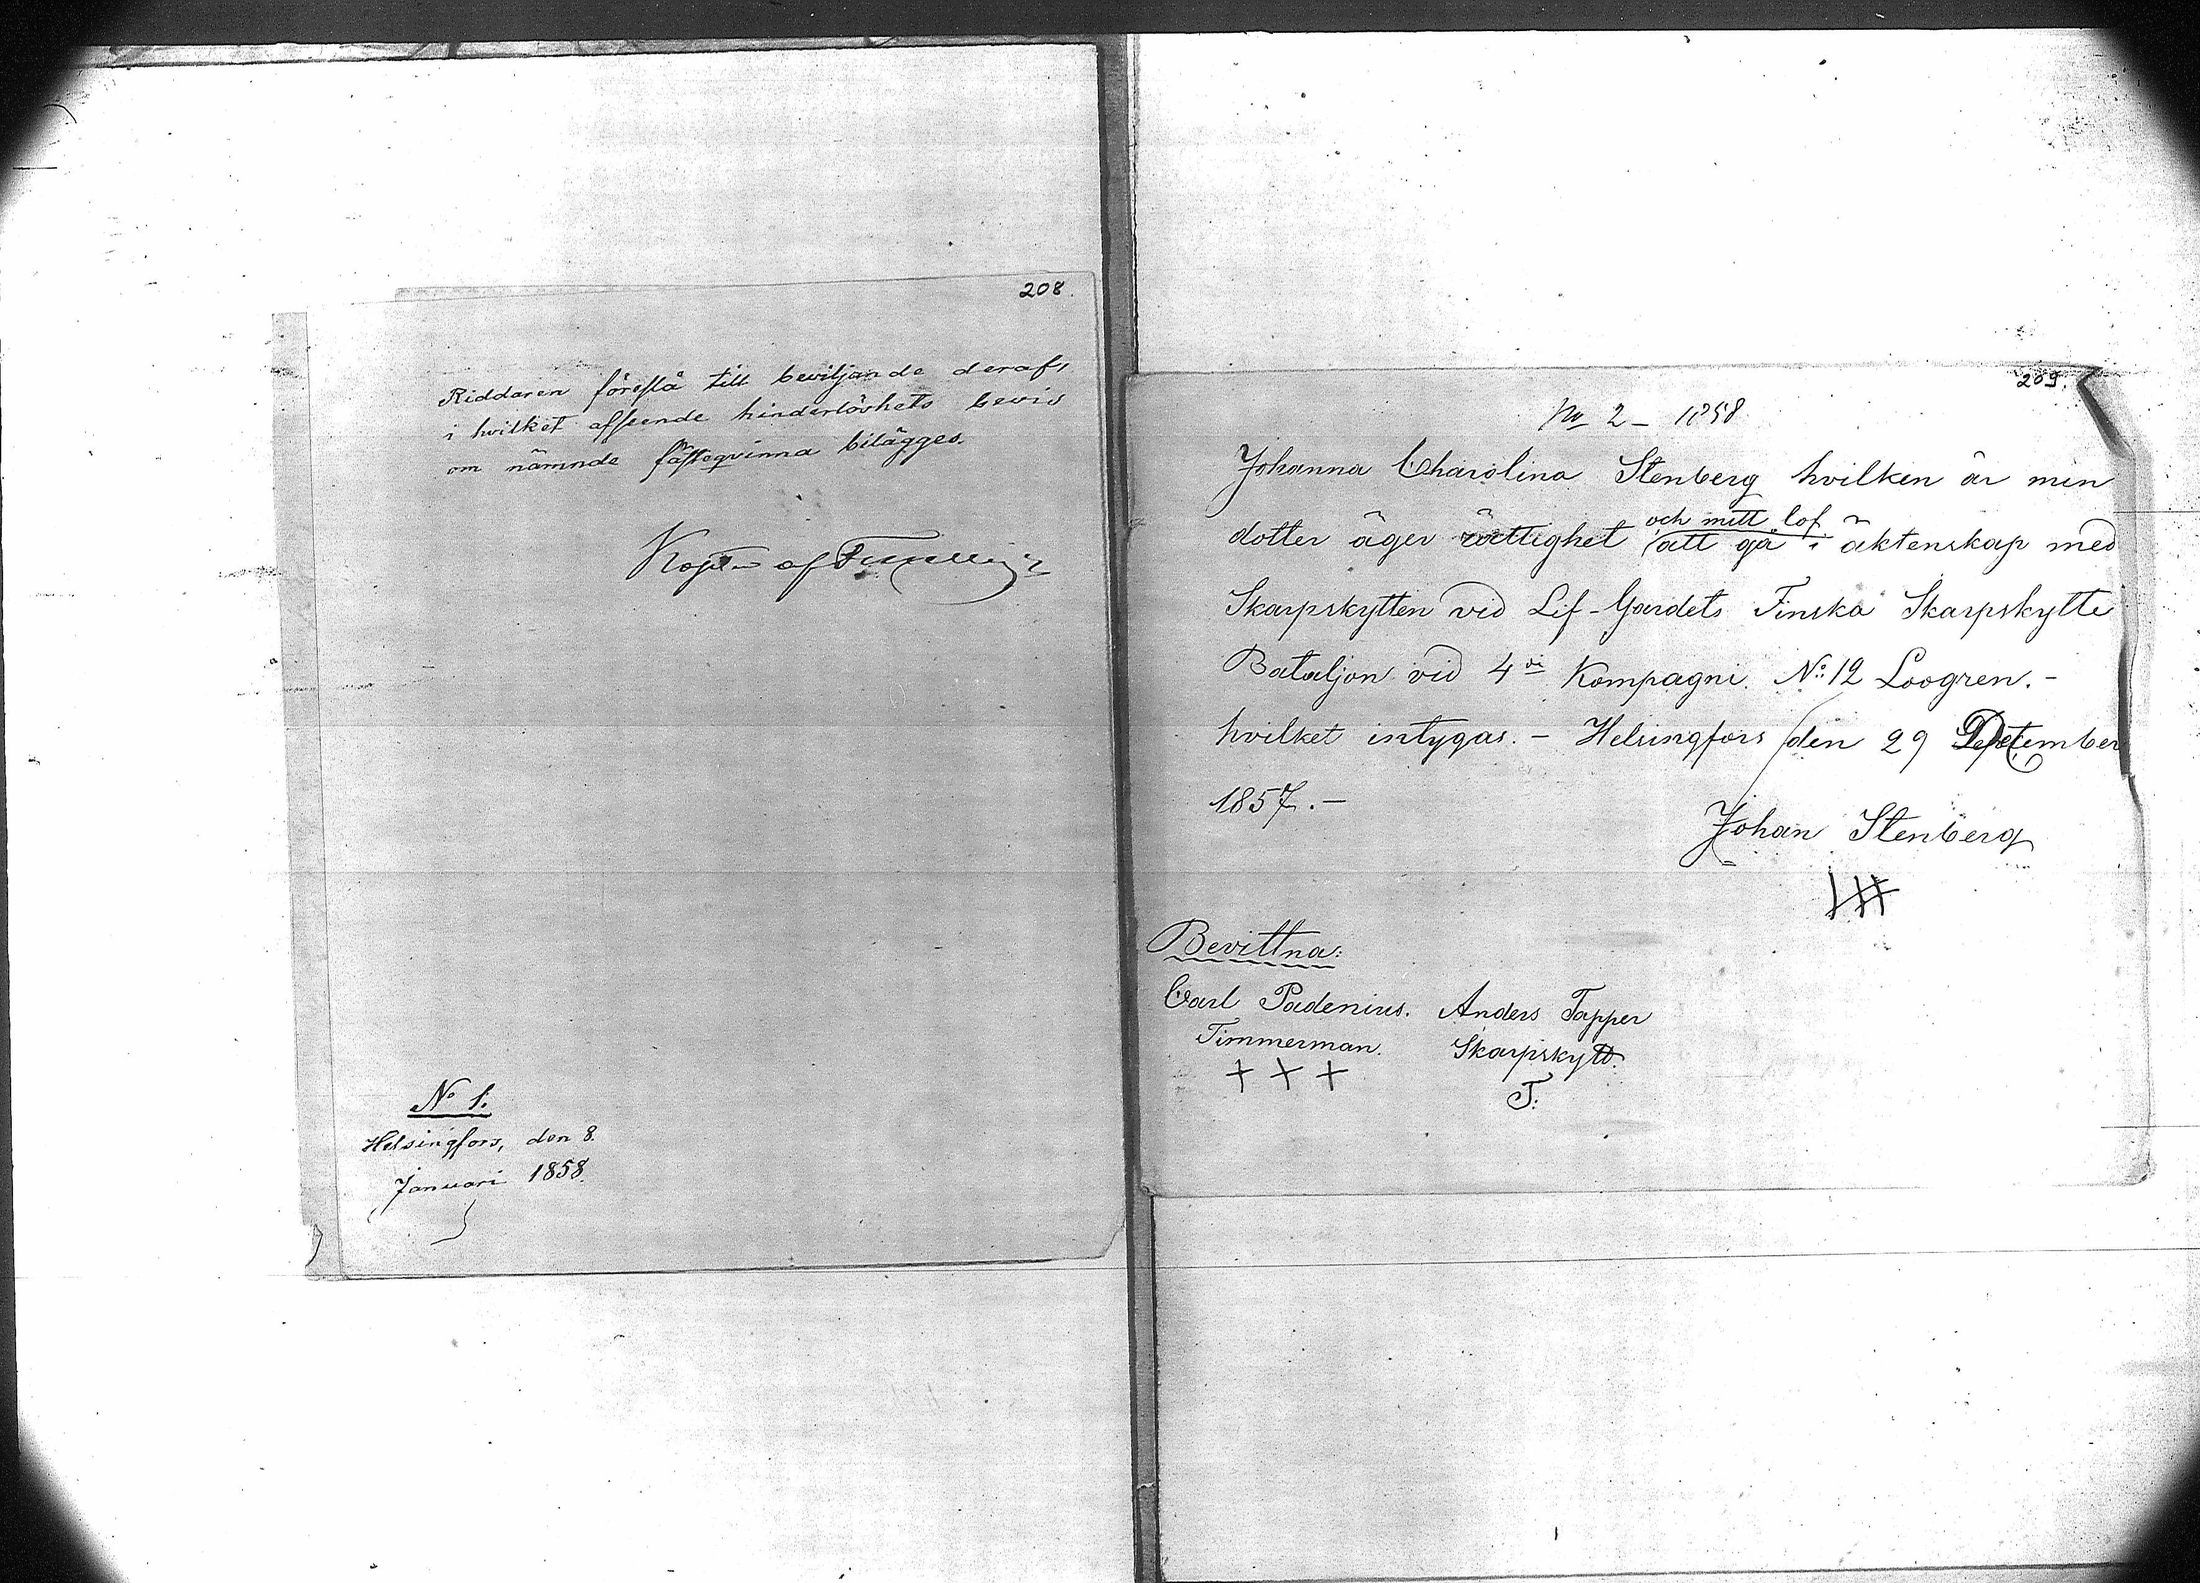 208.
Riddaren föreslå till beviljande deraf,
i hvilket afseende hinderlöshets bevis
om nämnde fästeqvinna bilägges.
af
No 1.
Helsingfors, den 8.
Januari 1858.
209.
No 2 - 1858
Johanna Charolina Stenberg hvilken är min
och mitt lof
dotter äger rättighet att gå i äktenskap med
Skarpskytten vid Lif-Gardets Finska Skarpskytte
Bataljon vid 4de Kompagni. No: 12 Loogren. -
hvilket intygas. - Helsingfors den 29 December
1857. -
Johan Stenberg
Bevittna:
Carl Padenius. Anders Tapper
Timmerman. Skarpskytt.
+ + + T: